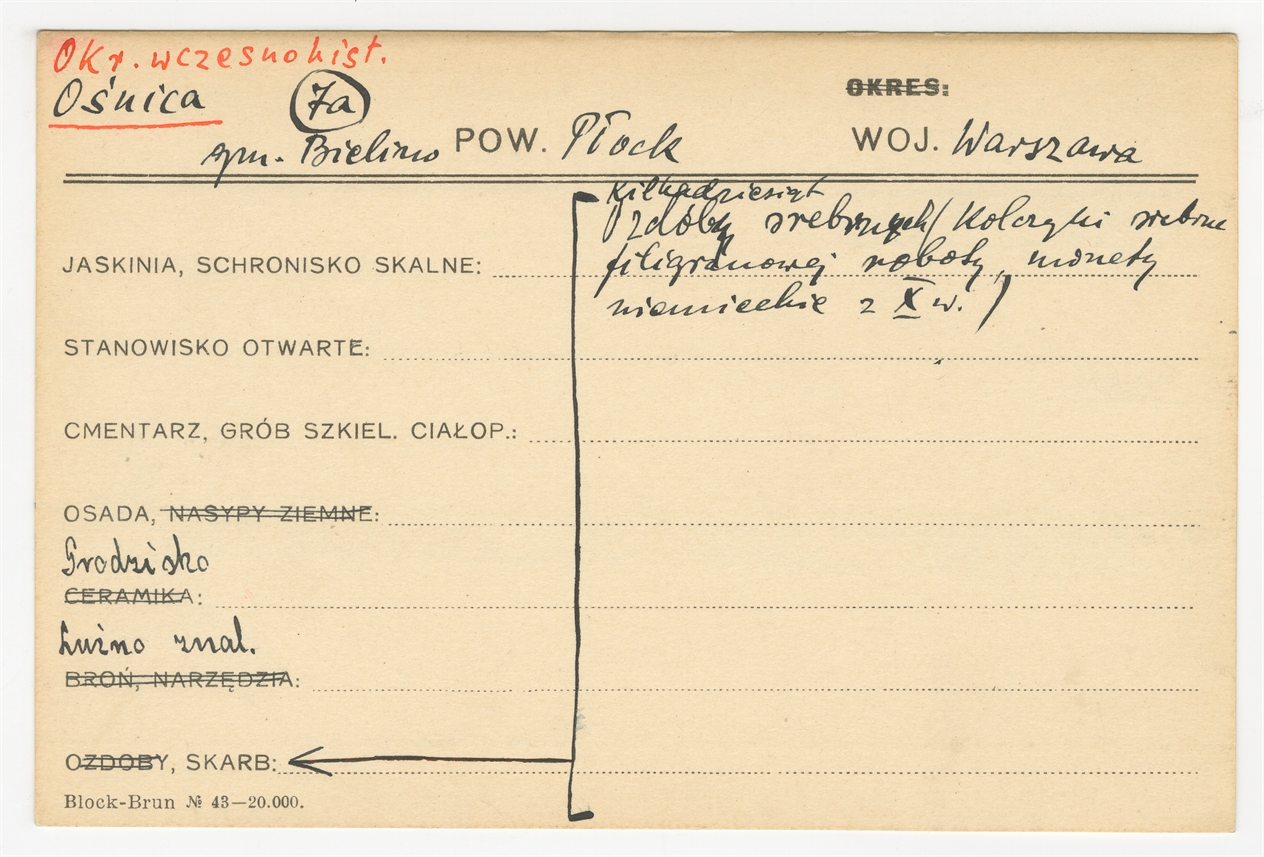 Okr. wczesnohist.
Ośnica 7a
OKRES:
gm. Bielino POW. Płock WOJ. Warszawa
Kilkadziesiąt
Ozdoby srebrnych (Kolczyki srebrne
JASKINIA, SCHRONISKO SKALNE: filigranowej roboty, monety
niemieckie z X w.)
STANOWISKO OTWARTE:
CMENTARZ, GRÓB SZKIEL. CIAŁOP.:
OSADA, NASYPY ZIEMNE:
Grodzisko
CERAMIKA:
Luźno znal.
BROŃ, NARZĘDZIA:
OZDOBY, SKARB:
Block-Brun № 43—20.000.